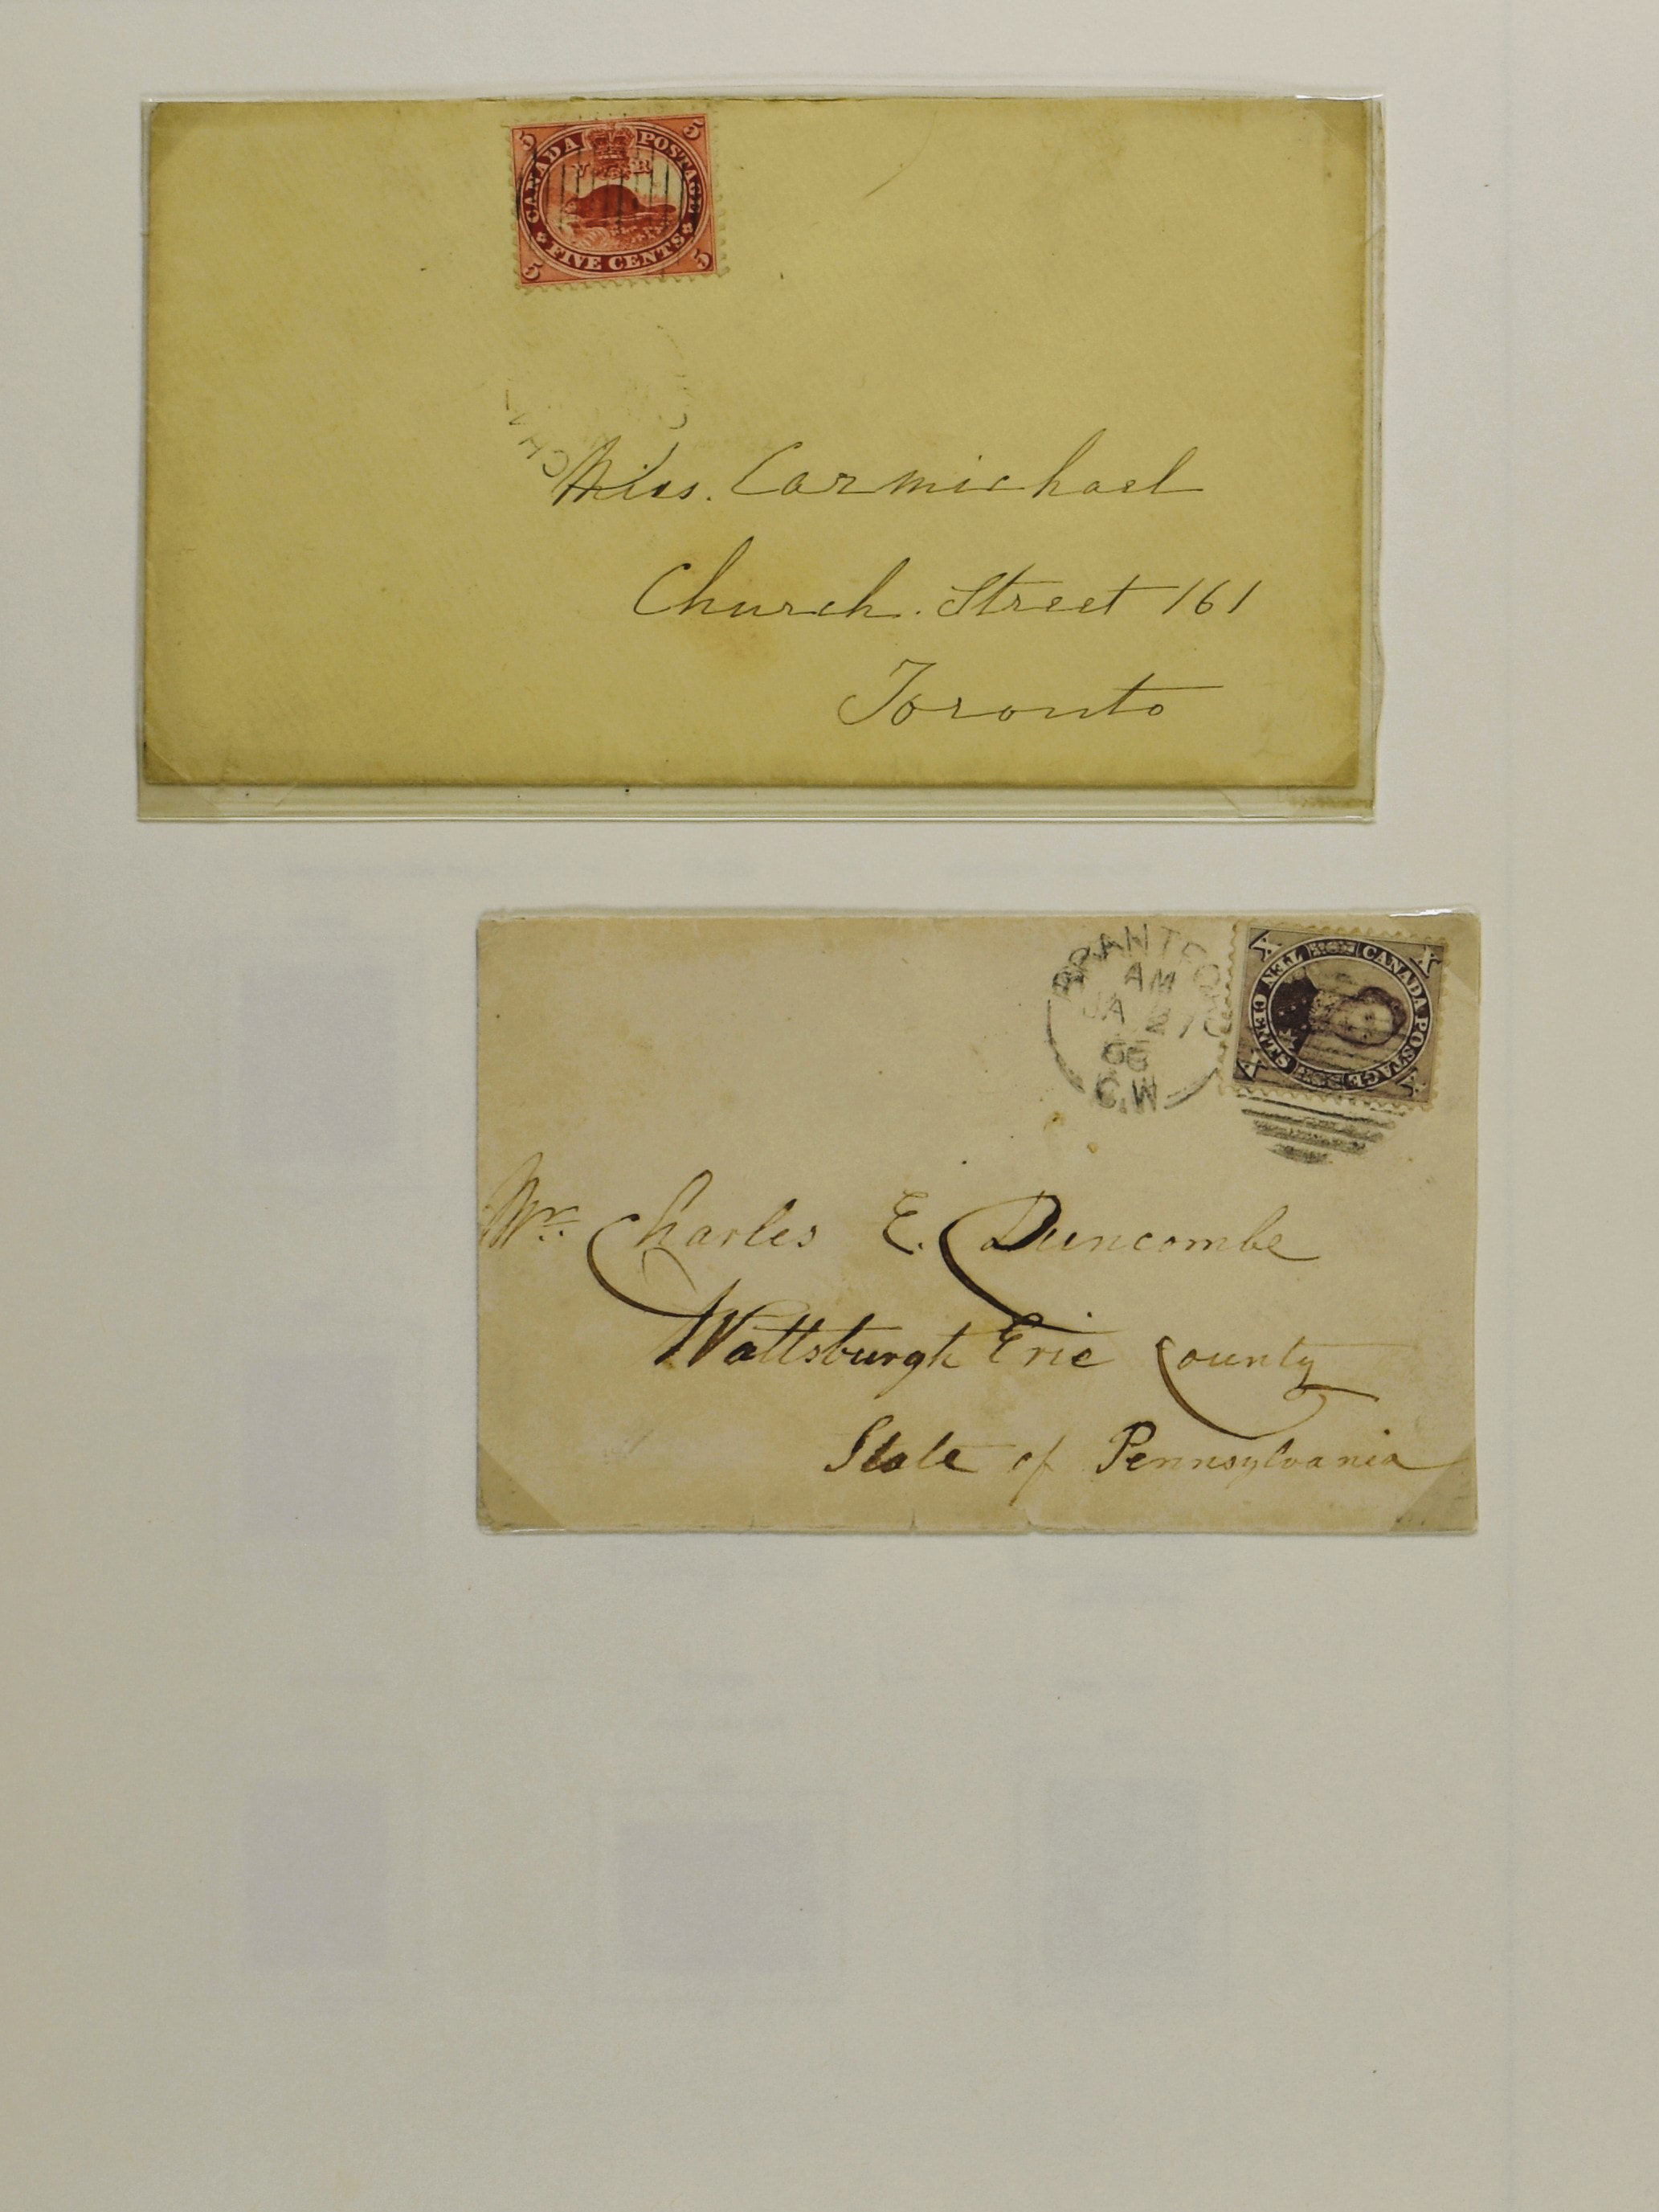 5 5
CANADA POSTAGE
V R
FIVE CENTS
5 5
CHA
Miss. Carmichael
Church. Street 161
Toronto
BRANTFORD
AM
JA 27
66
C.W
X X
CANADA POSTAGE
TEN CENTS
X X
Mr. Charles E. Duncombe
Wattsburgh Erie County
State of Pennsylvania